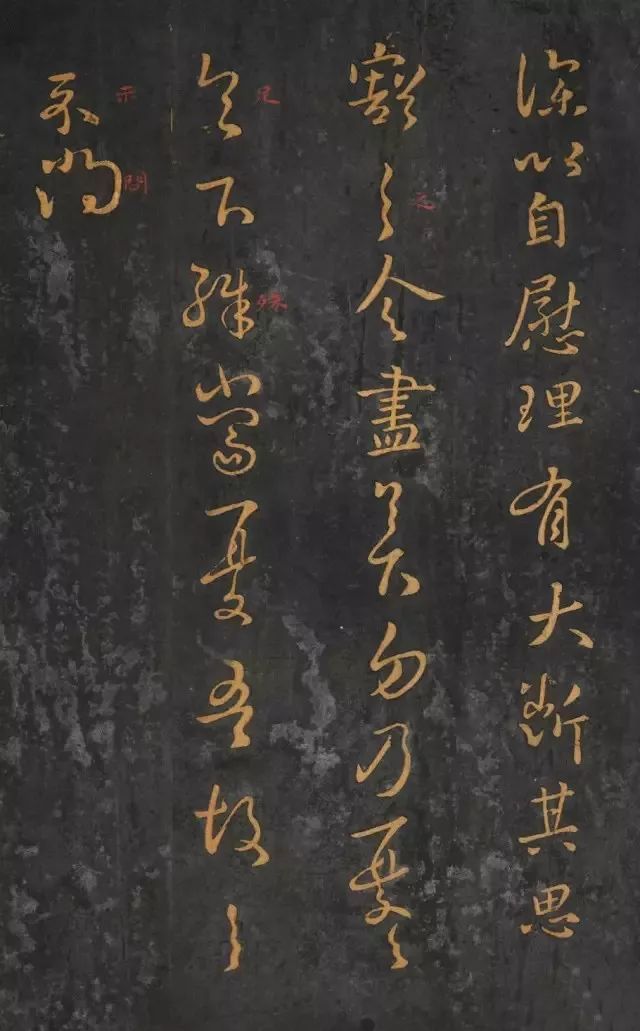 深以自慰理有大斷其思
豁之令盡足下勿乃憂之
之
足下殊當憂吾故之
殊
示問
示
問